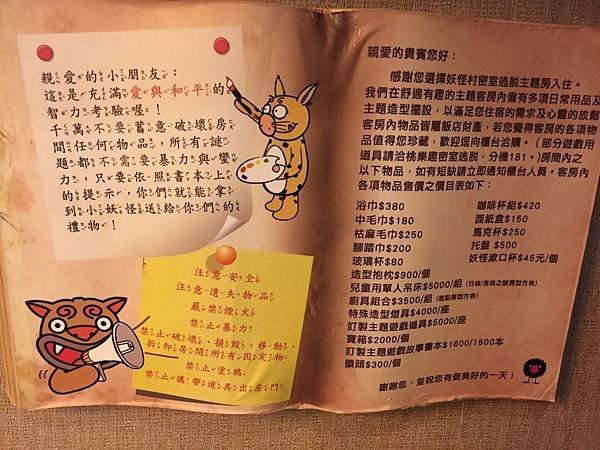 親愛的小朋友：
這是充滿愛與和平的
智力考驗喔！
千萬不要蓄意破壞房
間任何物品，所有謎
題都不需要暴力與蠻
力，只要依照書本上
的提示，你們就能拿
到小妖怪送給你們的
禮物！
注意安全
注意遺失物品
嚴禁煙火
禁止暴力
禁止破壞、損毀、移動、
拆卸房間所有固定物
禁止塗鴉
禁止攜帶道具出房門
親愛的貴賓您好：
感謝您選擇妖怪村密室逃脱主題房入住。
我們在舒適有趣的主題客房內備有多項日常用品及
主題造型擺設，以滿足您住宿的需求及心靈的放鬆
客房內物品皆屬飯店財產，若您覺得客房的各項物
品值得您珍藏，歡迎逕向櫃台洽購。（部分遊戲用
道具請洽桃樂趣密室逃脱，分機181。）房間內之
以下物品，如有短缺請立即通知櫃台人員。客房內
各項物品售價之價目表如下：
浴巾$380 咖啡杯組$420
中毛巾$180 面紙盒$150
枯麻毛巾$250 馬克杯$250
腳踏巾$200 托盤 $500
玻璃杯$80 妖怪漱口杯$45元/個
造型抱枕$900/個
兒童用單人吊床$5000/組(日森/夜森之謎房型方有)
廚具組合$3500/組
特殊造型燈具$4000/座
訂製主題遊戲道具$5000/座
寶箱$2000/個
訂製主題遊戲故事書本$1800/1500本
鎖頭$300/個
謝謝您，並祝您有個美好的一天！